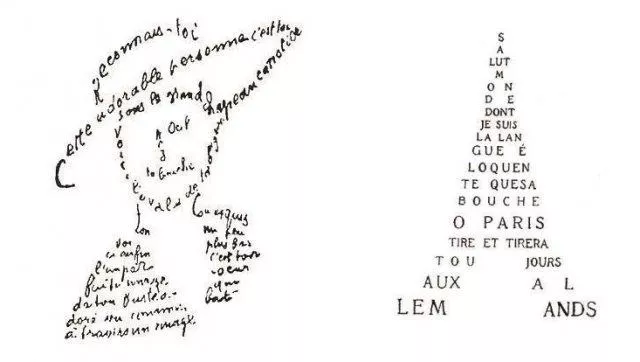 Reconnais-toi
Cette adorable personne c'est toi
sous le grand chapeau canotier
Oeil
Nez
la bouche
Voici l'ovale de ta figure
Ton
Cou exquis
Voi
ci enfin
l'impar
faite image
de ton buste a
doré vu comme
à travers un nuage
un peu
plus bas
c'est ton
coeur
qui
bat
S
A
LUT
M
O N
D E
DONT
JE SUIS
LA LAN
GUE É
LOQUEN
TE QUE SA
BOUCHE
O PARIS
TIRE ET TIRERA
TOU JOURS
AUX A L
LEM ANDS